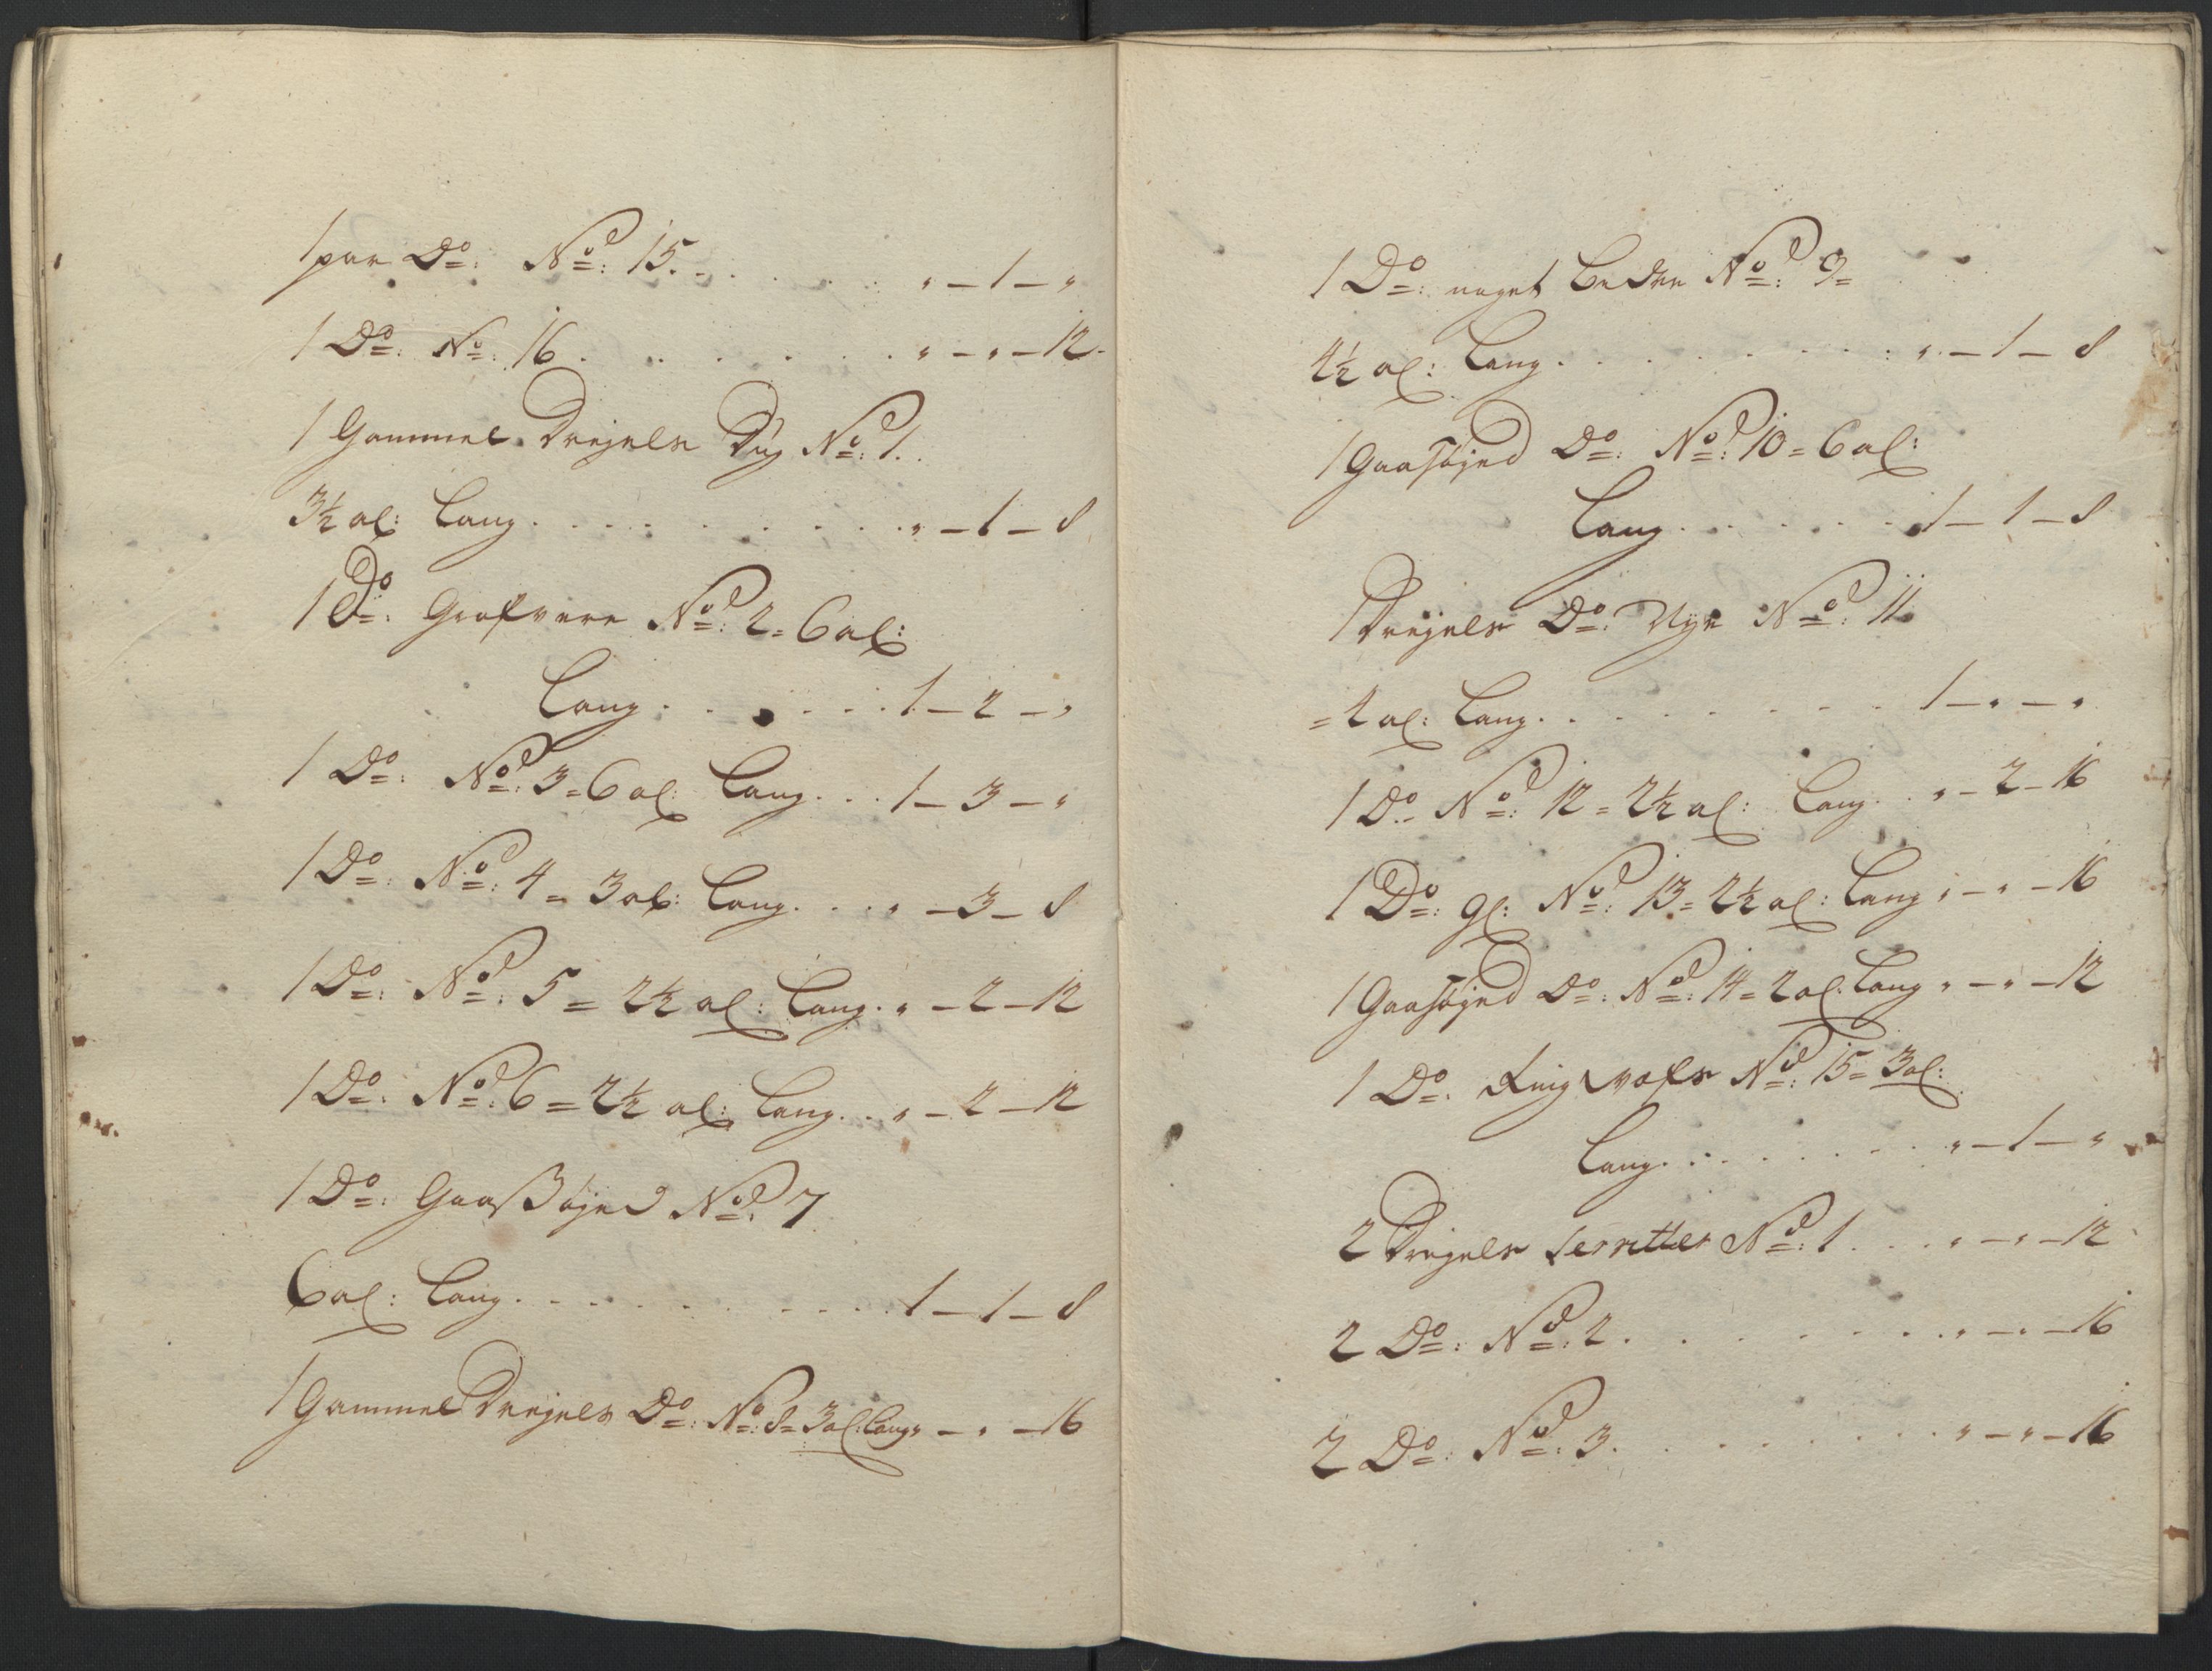 1 par Do: No: 15. . . . . . „ – 1 – „
1 Do: No: 16 . . . . . . . „ – „ – 12.
1 Gammel Drejels Dug No: 1.
3½ al: Lang . . . . . . . . „ – 1 – 8
1 Do: Grofvere No: 2 = 6 al:
Lang . . . . . . 1 – 2 – „
1 Do: No: 3 = 6 al: Lang . . . 1 – 3 – „
1 Do: No: 4 = 3 al: Lang . . . „ – 3 – 8
1 Do: No: 5 = 2½ al: Lang . „ – 2 – 12
1 Do: No: 6 = 2½ al: Lang . . „ – 2 – 12
1 Do: Gaasßøjed No: 7
6 al: Lang . . . . . . . . . 1 – 1 – 8
1 Gammel Drejels Do: No: 8 = 3 al: Lang „ – „ – 16
1 Do: noget Bedre No: 9 =
4½ al: Lang . . . . . . . . „ – 1 – 8
1 Gaasøjed Do: No: 10 = 6 al:
Lang . . . . . 1 – 1 – 8
1 Drejels Do: Nye No: 11
= 4 al: Lang . . . . . . . 1 – „ – „
1 Do: No: 12 = 2½ al: Lang . . „ – 2 – 16
1 Do: gl: No: 13 = 2½ al: Lang „ – „ – 16
1 Gaasøjed Do: No: 14 = 2 al: Lang „ – „ – 12
1 Do: No: 15 = 3 al:
Lang . . . . . . . „ – 1 – „
2 Drejels Servetter No: 1 . . . „ – „ – 12
2 Do: No: 2 . . . . . . . „ – „ – 16
2 Do: No: 3 . . . . . . . „ – „ – 16